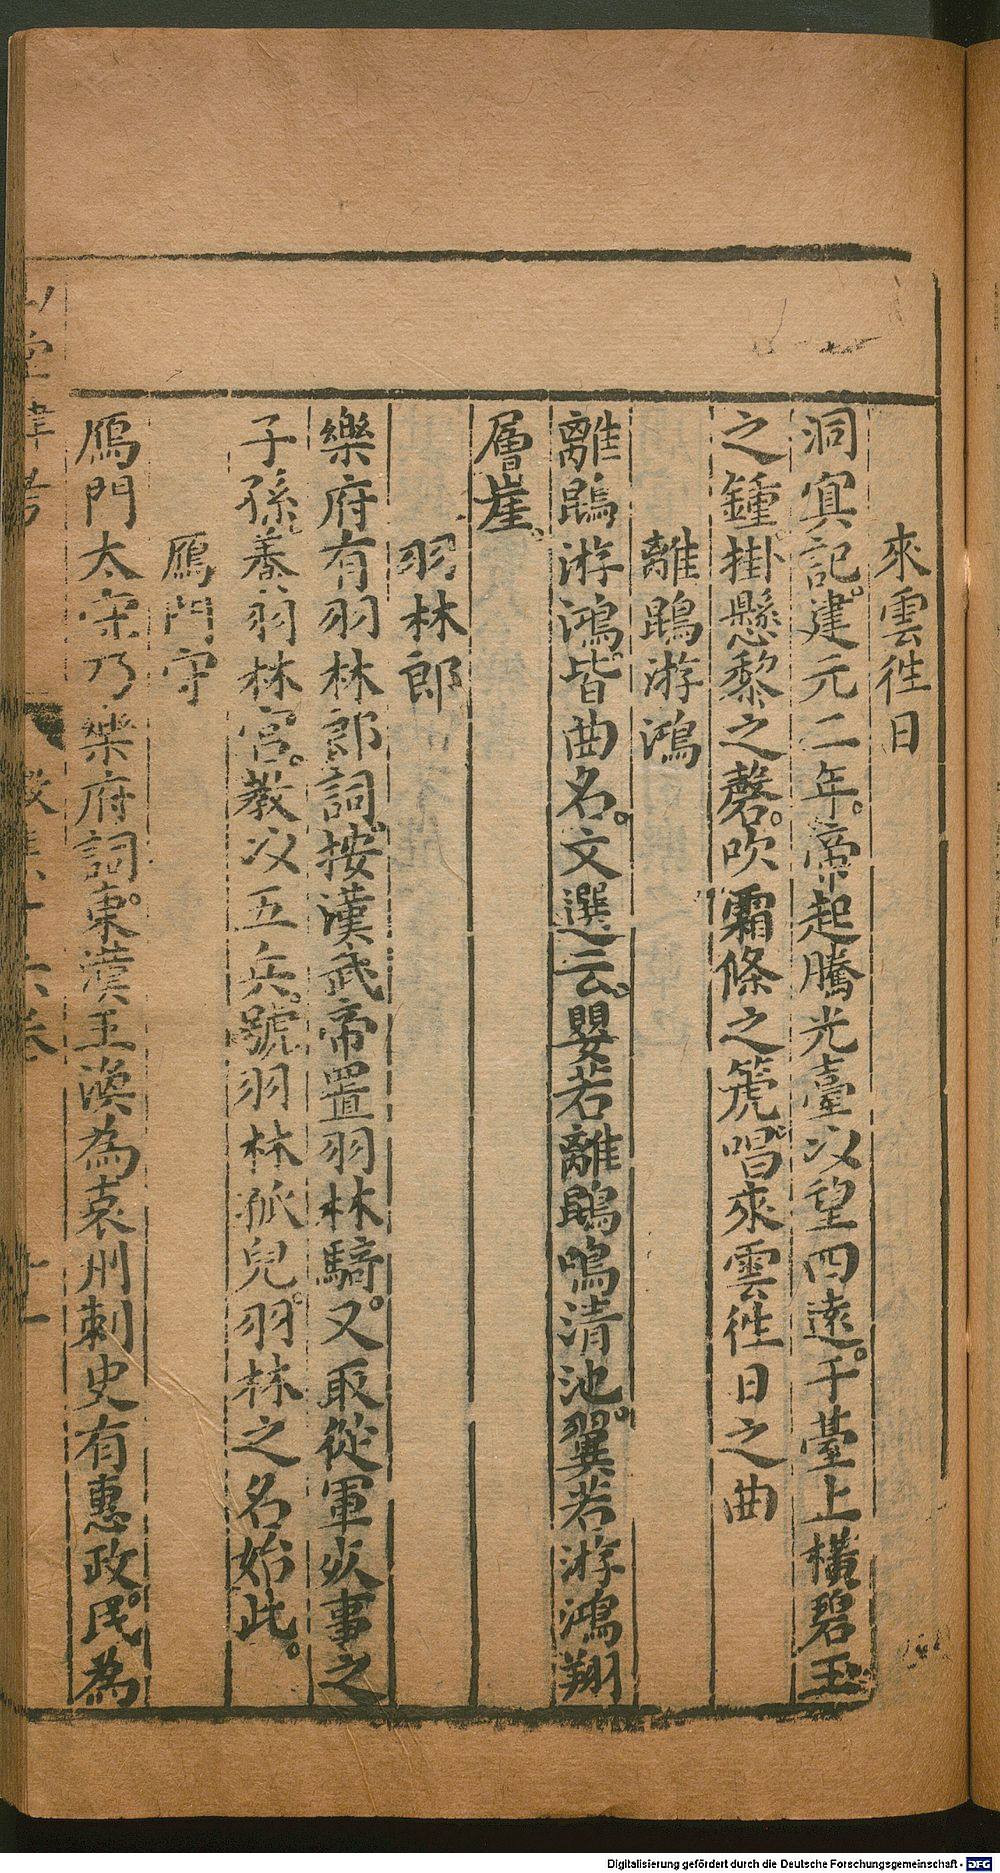 來雲徃日
洞㝠記。建元二年。帝起騰光臺以望四遠。于臺上橫碧玉
之鍾。掛懸黎之磬。吹霜條之篪。唱來雲徃日之曲
離鵾游鴻
離鵾游鴻。皆曲名。文選云。嬰若離鵾鳴清池。翼若游鴻翔
層崖。
羽林郎
樂府有羽林郎詞。按漢武帝置羽林騎。又取從軍死事之
子孫。養羽林官。敎以五兵。號羽林孤兒。羽林之名始此。
鴈門守
鴈門太守乃樂府詞。東漢王渙為袁州刺史有惠政。民為
山堂肆考
十六卷
十一
Digitalisierung gefördert durch die Deutsche Forschungsgemeinschaft - DFG